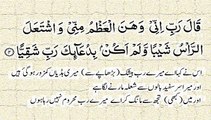 قَالَ رَبِّ اِنِّیْ وَهَنَ الْعَظْمُ مِنِّیْ وَ اشْتَعَلَ
الرَّاْسُ شَیْبًا وَّ لَمْ اَكُنْۢ بِدُعَآىِٕكَ رَبِّ شَقِیًّا
اس نے کہا اے میرے رب بیشک (بڑھاپے سے) میری ہڈیاں کمزور ہو گئی ہیں
اور میرا سر سفید بالوں سے شعلہ مارنے لگا ہے
اور میں (کبھی) تجھ سے مانگ کر اے میرے رب محروم نہیں رہا ہوں